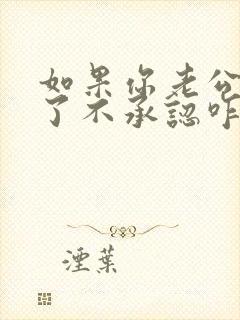 如果你老公
了不承認咋
湮葉